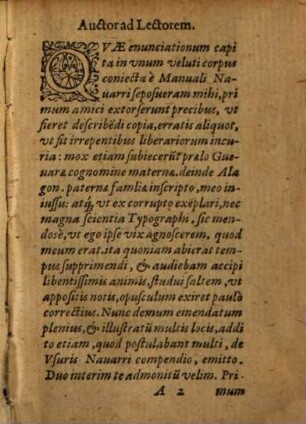 Auctor ad Lectorem.
QVÆ enunciationum capi
ta in vnum veluti corpus
coniecta è Manuali Na-
uarri seposueram mihi, pri
mum amici extorserunt precibus, vt
fieret describẽdi copia, erratis aliquot,
vt fit irrepentibus librariorum incu-
ria: mox etiam subiecerũt prælo Gue-
uaræ cognomine maternæ. deinde Ala
gon. paternæ familiæ inscripto, meo in-
iussu: atq; vt ex corrupto exẽplari, nec
magna scientia Typographi, sic men-
dosè, vt ego ipse vix agnoscerem, quod
meum erat. ita quoniam abierat tem-
pus supprimendi, & audiebam accipi
libentissimis animis, studui saltem, vt
appositis notis, opusculum exiret paulò
correctius. Nunc demum emendatum
plenius, & illustratũ multis locis, addi
to etiam, quod postulabant multi, de
Vsuris Nauarri compendio, emitto.
Duo interim te admonitũ velim. Pri-
A 2 mum